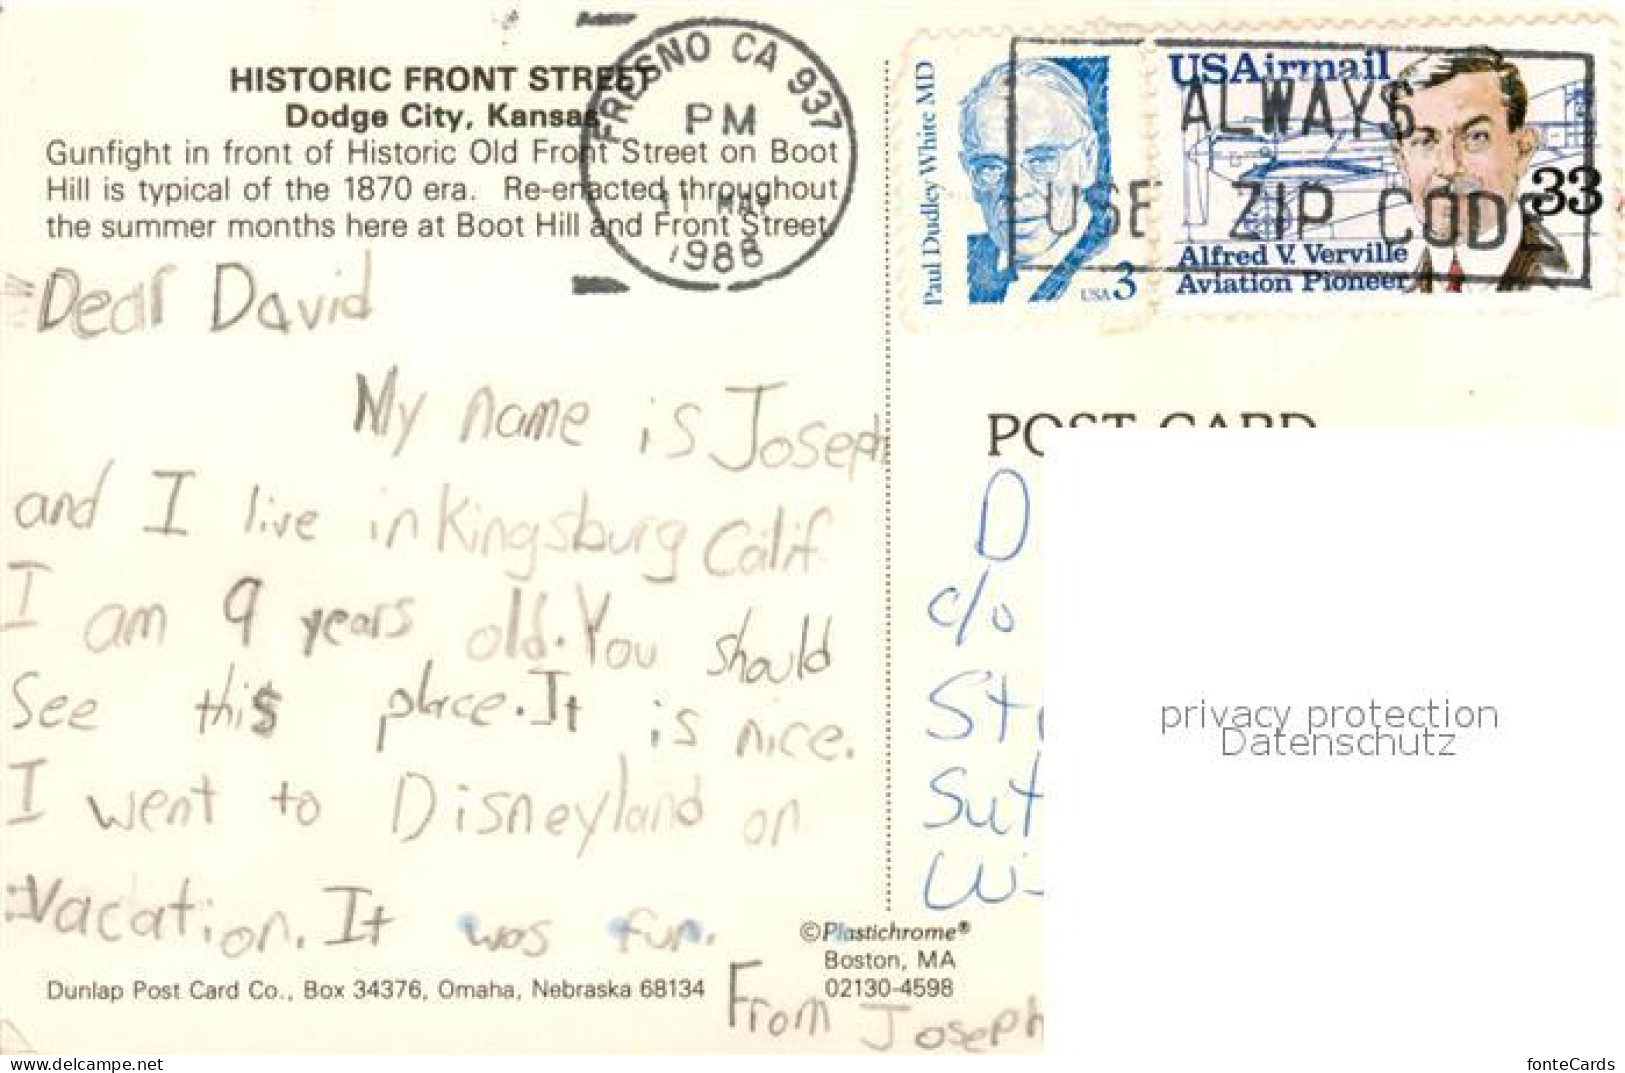 HISTORIC FRONT STREET
Dodge City, Kansas
Gunfight in front of Historic Old Front Street on Boot
Hill is typical of the 1870 era. Re-enacted throughout
the summer months here at Boot Hill and Front Street.
FRESNO CA 937
PM
11 MAY
1988
Paul Dudley White MD
USA 3
USAirmail
33
Alfred V. Verville
Aviation Pioneer
ALWAYS
USE ZIP CODE
Dear David
My name is Joseph
and I live in Kingsburg Calif.
I am 9 years old. You should
See this place. It is nice.
I went to Disneyland on
vacation. It was fun.
From Joseph
POST CARD
D
c/o
St
Sut
Wi
privacy protection
Datenschutz
©Plastichrome®
Boston, MA
02130-4598
Dunlap Post Card Co., Box 34376, Omaha, Nebraska 68134
www.ansichtskartenversand.com
fonteCards